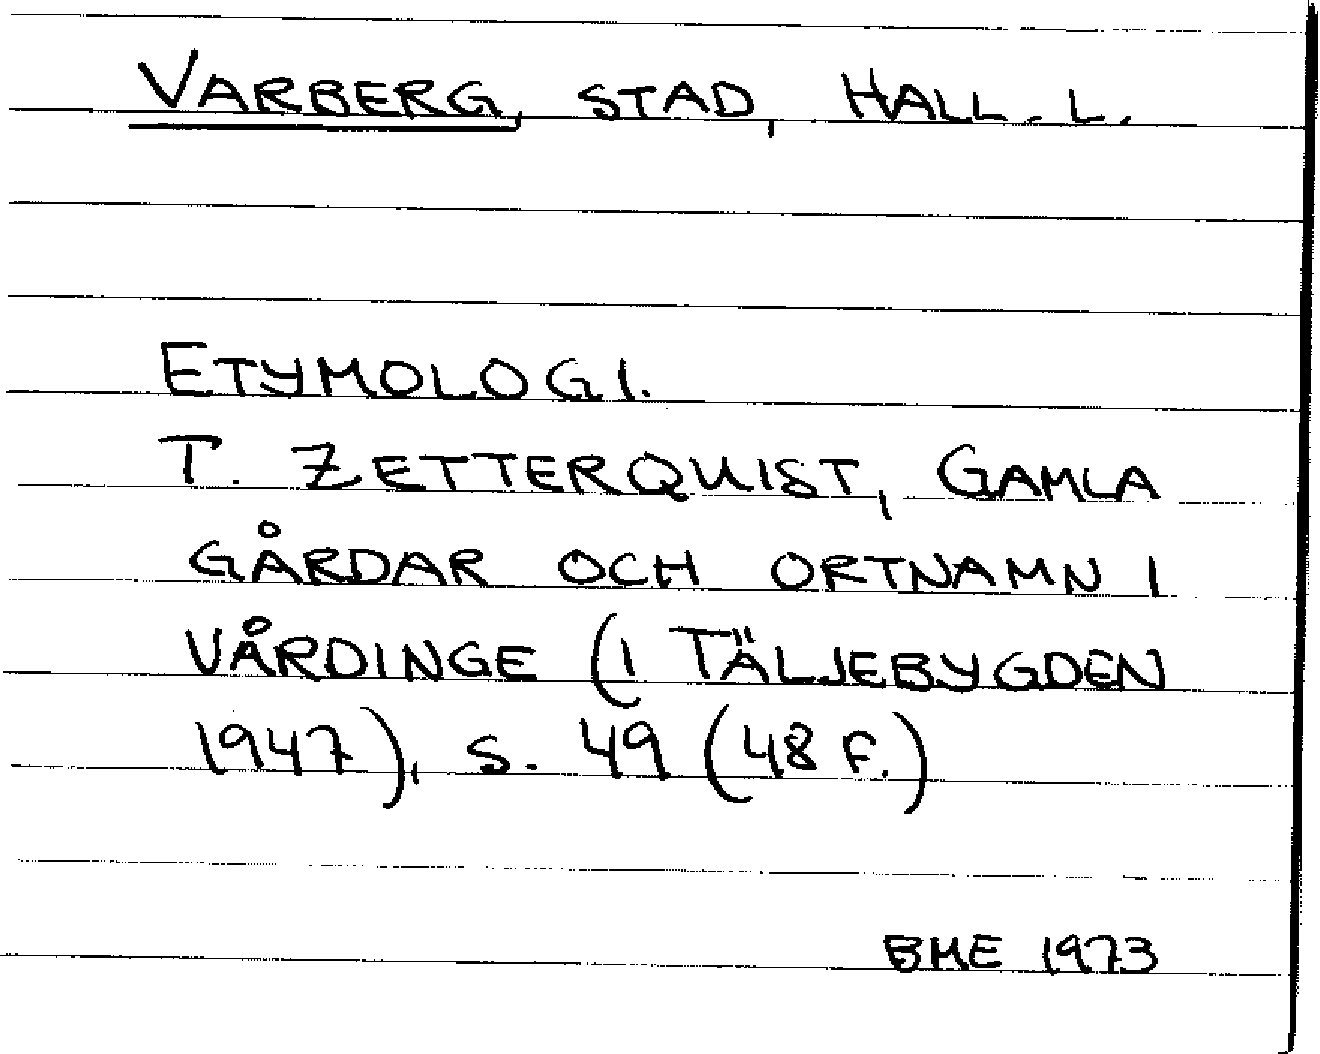 VARBERG, STAD, HALL. L.
ETYMOLOGI.
T. ZETTERQUIST, GAMLA
GÅRDAR OCH ORTNAMN I
VÅRDINGE (I TÄLJEBYGDEN
1947), S. 49 (48 F.)
BME 1973